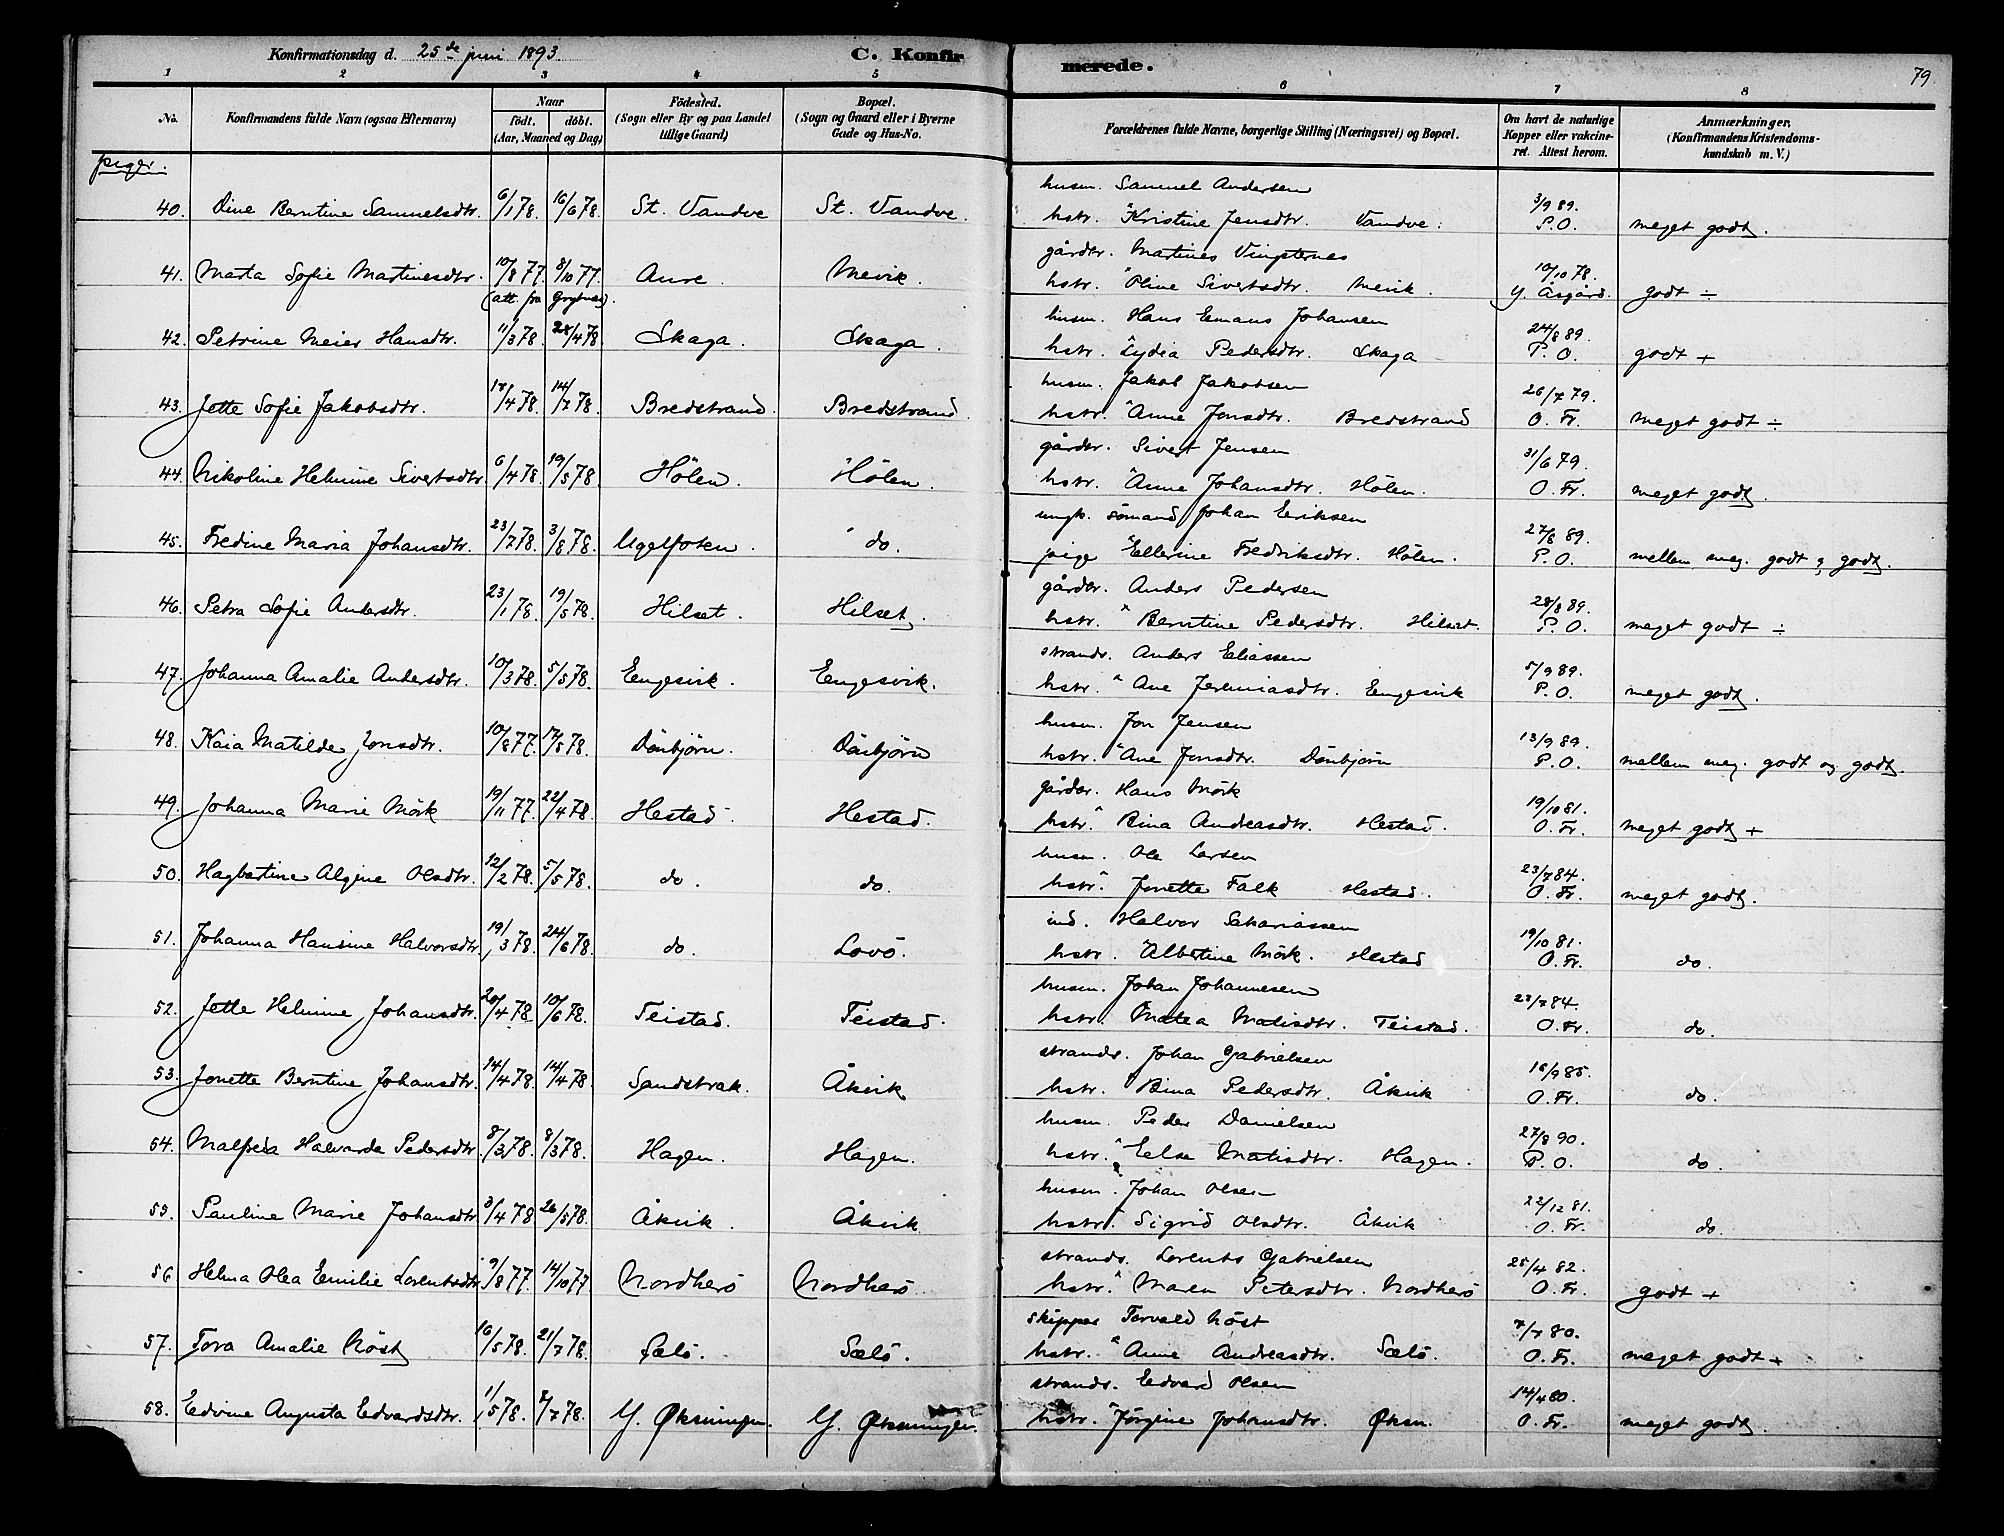 Konfirmationsdag d. 25de juni 1893
C. Konfirmerede.
79
1 2 3 4 5 6 7 8
No.
Konfirmandens fulde Navn (ogsaa Efternavn)
Naar
födt. döbt.
(Aar, Maaned og Dag)
Födested.
(Sogn eller By og paa Landet tillige Gaard)
Bopæl.
(Sogn og Gaard eller i Byerne Gade og Hus-No.
Forældrenes fulde Navne, borgerlige Stilling (Næringsvei) og Bopæl.
Om havt de naturlige Kopper eller vakcineret. Attest herom.
Anmærkninger,
(Konfirmandens Kristendomskundskab m. V.)
piger.
husm. Samuel Andersen
40. Dine Berntine Samuelsdtr. 6/1 78. 16/6 78. St. Vandve St. Vandve. hstr. Kristine Jensdtr. Vandve. 3/9 89. P.O. meget godt.
gårdbr. Martines Vingsternes
41. Marta Sofie Martinesdtr. 10/8 77. 8/10 77. Aure. Mevik. hstr. Oline Sivertsdtr. Mevik. 10/10 78. Y. Åsgård. godt ÷
(att. fra Grytnæs).
husm. Hans Emans Johansen
42. Petrine Meier Hansdtr. 11/3 78. 28/4 78 Skaga. Skaga. hstr. Lydia Pedersdtr. Skaga 24/8 89. P.O. godt +
husm. Jakob Jakobsen
43. Jette Sofie Jakobsdtr. 17/4 78. 14/7 78. Bredstrand. Bredstrand. hstr. Anne Jonsdtr. Bredstrand 26/7 79. O. Fr. meget godt ÷
gårdbr. Sivert Jensen
44. Nikoline Helmine Sivertsdtr 6/4 78. 19/5 78. Hölen. Hölen. hstr. Anne Johansdtr. Hölen. 31/6 79. O. Fr. meget godt.
ungk. sömand Johan Eriksen
45. Fredine Maria Johansdtr. 23/7 78. 3/8 78. Ugelfoten. do. pige Ellerine Fredriksdtr. Hölen. 27/8 89. P.O. mellem meg. godt og godt.
gårdbr. Anders Pedersen
46. Petra Sofie Andersdtr. 23/1 78. 19/5 78. Hilset. Hilset. hstr. Berntine Pedersdtr. Hilset. 28/8 89. P.O. meget godt ÷
strands. Anders Eliassen
47. Johanna Amalie Andersdtr. 10/3 78. 5/5 78. Engesvik. Engesvik. hstr. Ane Jeremiasdtr. Engesvik 5/9 89. P.O. meget godt.
husm. Jon Jensen
48. Kaia Matilde Jonsdtr. 10/8 77. 17/5 78. Dönbjörn. Dönbjörn hstr. Ane Jonsdtr. Dönbjörn 13/9 89. P.O. mellem meg. godt og godt.
gårdbr. Hans Mörk
49. Johanna Marie Mörk 19/11 77. 22/4 78. Hestad. Hestad. hstr. Bina Andreasdtr. Hestad. 19/10 81. O. Fr. meget godt +
husm. Ole Larsen
50. Hagbertine Algine Olsdtr. 12/2 78. 5/5 78. do. do. hstr. Jonette Falk Hestad. 23/7 84. O. Fr. meget godt.
ind. Halvor Sakariassen
51. Johanna Hansine Halvorsdtr. 19/3 78. 24/6 78. do. Lovö. hstr. Albertine Mörk. Hestad 19/10 81. O. Fr. do.
husm. Johan Johannesen
52. Jette Helmine Johansdtr. 20/4 78 10/6 78. Teistad. Teistad. hstr. Matea Matisdtr. Teistad. 23/7 84. O. Fr. do.
strands. Johan Gabrielsen
53. Jonette Berntine Johansdtr. 14/4 78. 14/4 78 Sandstrak. Åkvik. hstr. Bina Pedersdtr. Åkvik 15/9 85. O. Fr. do.
husm. Peder Danielsen
54. Malfrida Halvarda Pedersdtr. 8/3 78. 8/3 78. Hagen. Hagen. hstr. Else Matisdtr. Hagen. 27/8 90. P.O. do.
husm. Johan Olsen
55. Pauline Marie Johansdtr 3/4 78 26/5 78. Åkvik. Åkvik. hstr. Sigrid Olsdtr. Åkvik 22/12 81. O. Fr. do
strands. Lorents Gabrielsen
56 Helma Olea Emilie Lorentsdtr. 9/8 77. 14/10 77 Nordherö Nordherö. hstr. Maren Petersdtr. Nordherö 25/4 82. O. Fr. godt +
skipper Torvald Höst
57. Tora Amalie Höst 16/5 78. 21/7 78. Sælö. Sælö. hstr. Anne Andreasdtr. Sælö. 7/7 80. O. Fr. meget godt +
strands. Edvard Olsen
58. Edvine Augusta Edvardsdtr. 1/5 78. 7/7 78. Y. Øksningen. Y. Øksningen. hstr. Jörgine Johansdtr. Øksn. 14/4 80. O. Fr. meget godt.